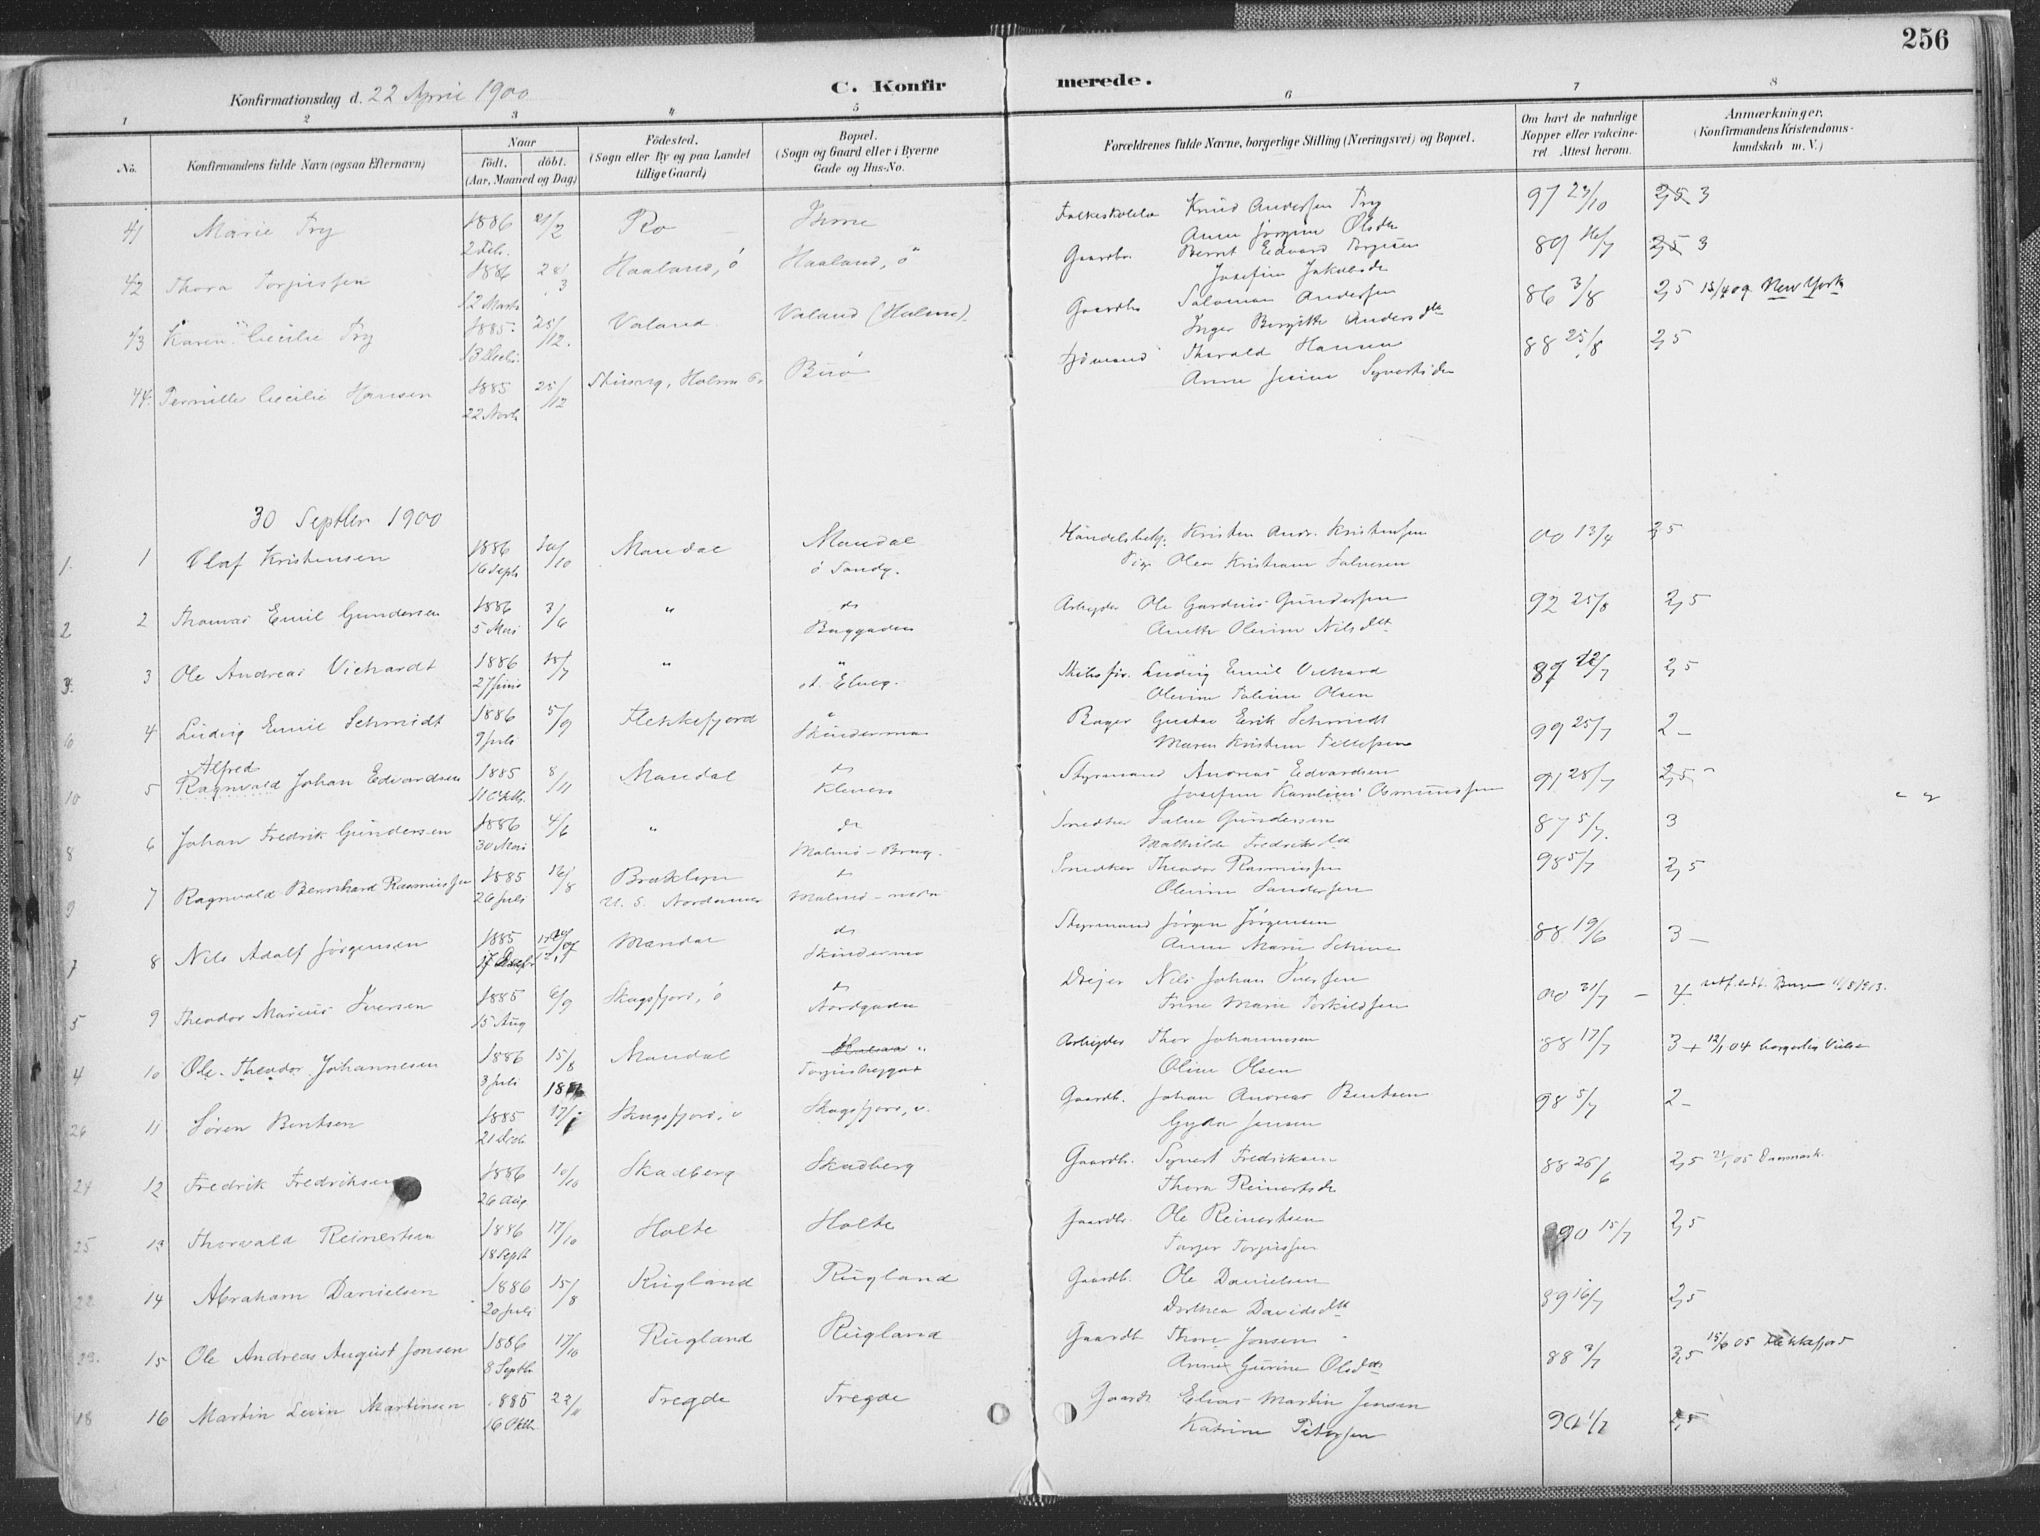 256
Konfirmationsdag d. 22 April 1900
C. Konfirmerede.
1 2 3 4 5 6 7 8
No.
Konfirmandens fulde Navn (ogsaa Efternavn)
Naar
født. døbt.
(Aar, Maaned og Dag)
Fødested.
(Sogn eller By og paa Landet
tillige Gaard)
Bopæl.
(Sogn og Gaard eller i Byerne
Gade og Hus-No.
Forældrenes fulde Navne, borgerlige Stilling (Næringsvei) og Bopæl.
Om havt de naturlige
Kopper eller vakcine-
ret. Attest herom.
Anmærkninger.
(Konfirmandens Kristendoms-
kundskab m. V.)
41 Marie Try 1886 21/2 Ro Ihme Knud Andersen Try 97 23/10 2,5 3
2 Feb. Anne Jørgine Olsdtr
42 Thora Torgiussen 1886 28/3 Haaland, ö Haaland, ö Gaardbr. Bernt Edvard 89 16/7 2,5 3
12 Marts Josefine Jakobsdtr
43 Karen Cecilie Try 1885 25/12 Valand Valand (Halum). Gaardbr Salomon Andersen 86 3/8 2,5 15/4 09 New York
13 Decbr Inger Birgitte Andersdtr
44. Pernille Cecilie Hansen 1885 25/12 Holum Thorald Hansen 88 25/8 2,5
22 Novb Anne Syvertsdtr
30 Septbr 1900
1. 1 Olaf Kristensen 1886 10/10 Mandal Mandal Kristen Andr. Kristensen 00 13/4 2,5
16 Septb ö Sandg. Olea Kristiane Salvesen
2 2 Thomas Emil Gundersen 1886 3/6 " do Arbeider Ole Gundersen 92 25/8 2,5
5 Mai Buggaden Anette Olevine Nilsdtr
3. 3 Ole Andreas Vichardt 1886 18/7 " " Ludvig Emil Vichard 89 12/7 2,5
27 Juni st. Elveg. Olevine Olsen
6 4 Ludvig Emil Schmidt 1886 5/9 Flekkefjord " Bager Gustav Erik Schmidt 99 25/7 2 -
9 Juli Skinderma Maren Kristine Tellefsen
Alfred
10 5 Ragnvald Johan Edvardsen 1885 8/11 Mandal do Styrmand Andreas Edvardsen 91 28/7 2,5 -
11 Oktb. Kleven Josefine Karoline Osmundsen
8 6 Johan Fredrik Gundersen 1886 4/6 " do Snedker Salve Gundersen 87 5/7. 3
30 Mai Malmö - Brug. Mathilde Fredriksdtr
9 7 Ragnvald Bernhard Rasmussen 1885 16/8 Bruklyn do Snedker Theodor Rasmussen 98 5/7 2,5
26 Juli U. S. Nordamer Malmö - nedr Olevine Sandersen
7 8 Nils Adolf Jørgensen 1885 Mandal do Styrmand Jørgen Jørgensen 88 19/6 3 -
Skinderma Anne Marie
5 9 Theodor Marius Iversen 1885 6/9 Skogsfjord, ö do Dreier Nils Johan Iversen 00 31/7 - 4 utf. att. Bergen 11/8 1913.
15 Aug Nordgaden Trine Marie Torkildsen
4 10 Ole Theodor Johannesen 1886 15/8 Mandal Arbeider Thor Johannesen 88 17/7 3 + 12/1 04 borgerlig Vielse
3 Juli 1886 Oline Olsen
26 11 Søren Bentsen 1885 17/1 Skogsfjord, v Skogsfjord, v. Gaardb. Johan Andreas Bentsen 98 5/7 2 -
21 Decb Gyda Jensen
24 12 Fredrik Fredriksen 1886 10/10 Skadberg Skadberg Gaardb. Syvert Fredriksen 88 26/6 2,5 21/1 05 Danmark.
26 Aug Thora Reinertsdtr
25 13 Thorvald Reinertsen 1886 17/10 Holte Holte Gaardbr. Ole Reinertsen 90 15/7 2,5
18 Septb Torgiussen
22 14 Abraham Danielsen 1886 15/8 Rugland Rugland Gaardb. Ole Danielsen 89 16/7 2,5
20 Juli Dorthea Davidsdtt
23. 15 Ole Andreas August Jonsen 1886 17/10 Rugland Rugland Gaardb Thore Jonsen 88 3/7 3,5 15/6 05 Flekkefjord
8 Septbr Anne Gurine Olsdtr
18 16 Martin Levin Martinsen 1885 22/11 Tregde Tregde Gaardb Elias Martin Jensen 90 1/7 2,5
16 Oktbr Katrine Petersen